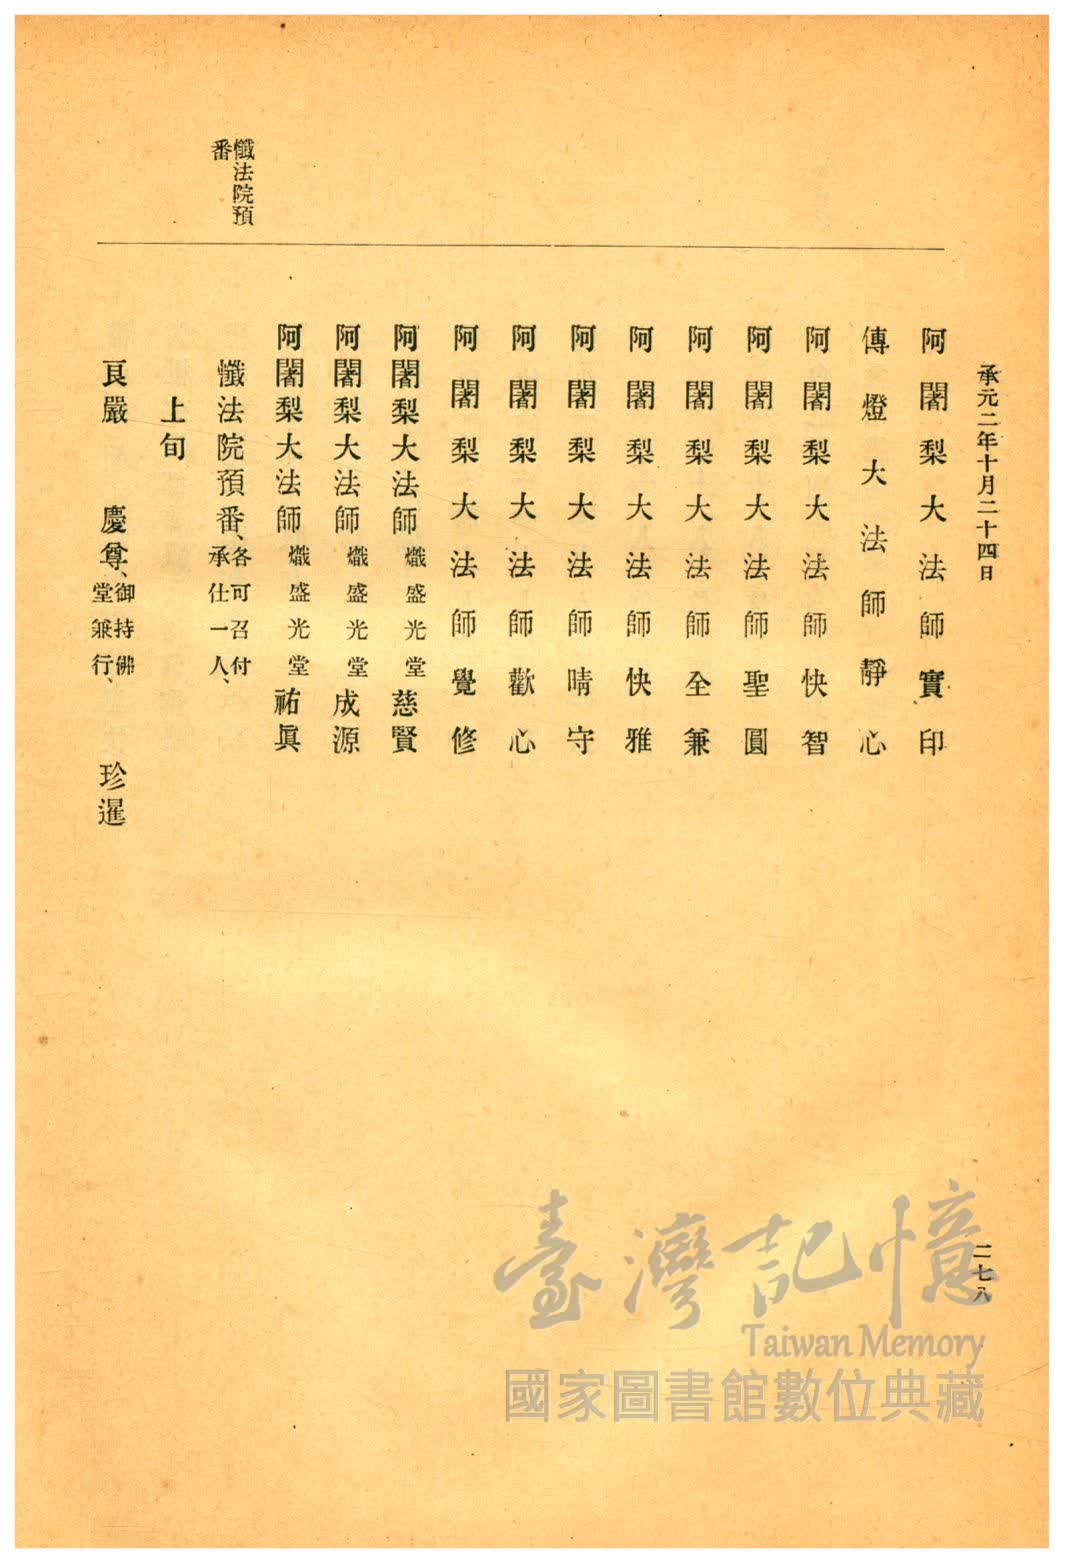 承元二年十月二十四日
二七八
阿闍梨大法師實印
傳燈大法師靜心
阿闍梨大法師快智
阿闍梨大法師聖圓
阿闍梨大法師全兼
阿闍梨大法師快雅
阿闍梨大法師晴守
阿闍梨大法師歡心
阿闍梨大法師覺修
阿闍梨大法師熾盛光堂慈賢
阿闍梨大法師熾盛光堂成源
阿闍梨大法師熾盛光堂祐眞
懺法院預
番
懺法院預番、各可召付
承仕一人、
上旬
良嚴 慶尊、御持佛
堂兼行、 珍暹
臺灣記憶
Taiwan Memory
國家圖書館數位典藏